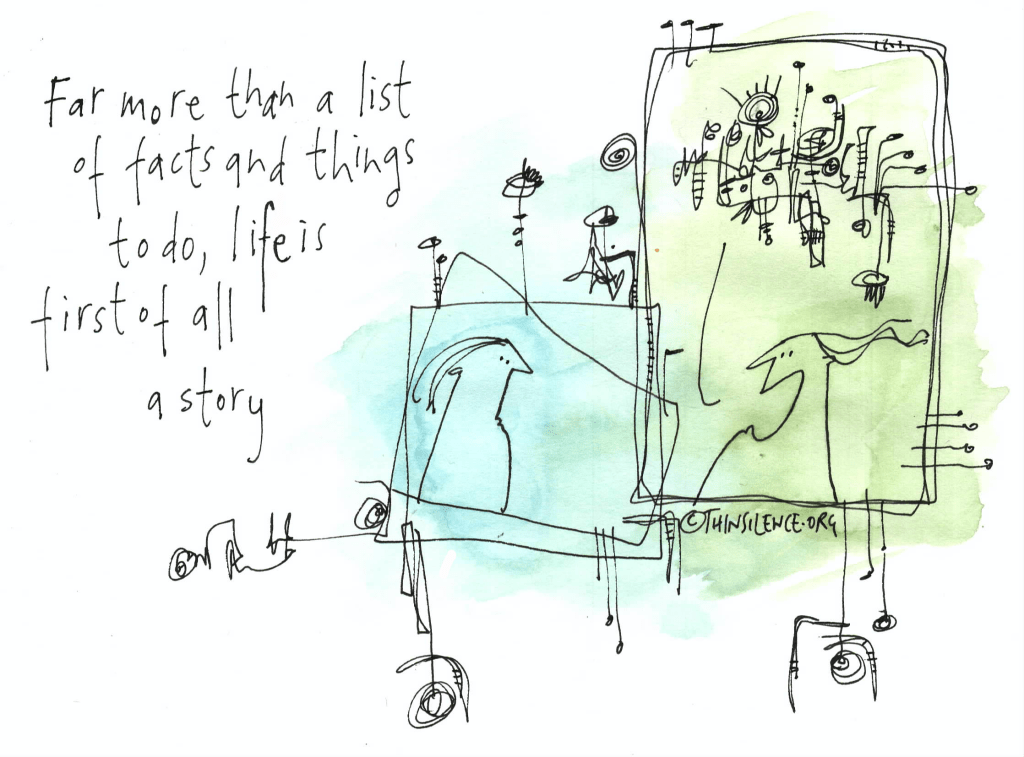 Far more than a list
of facts and things
to do, life is
first of all
a story
©THINSILENCE.ORG